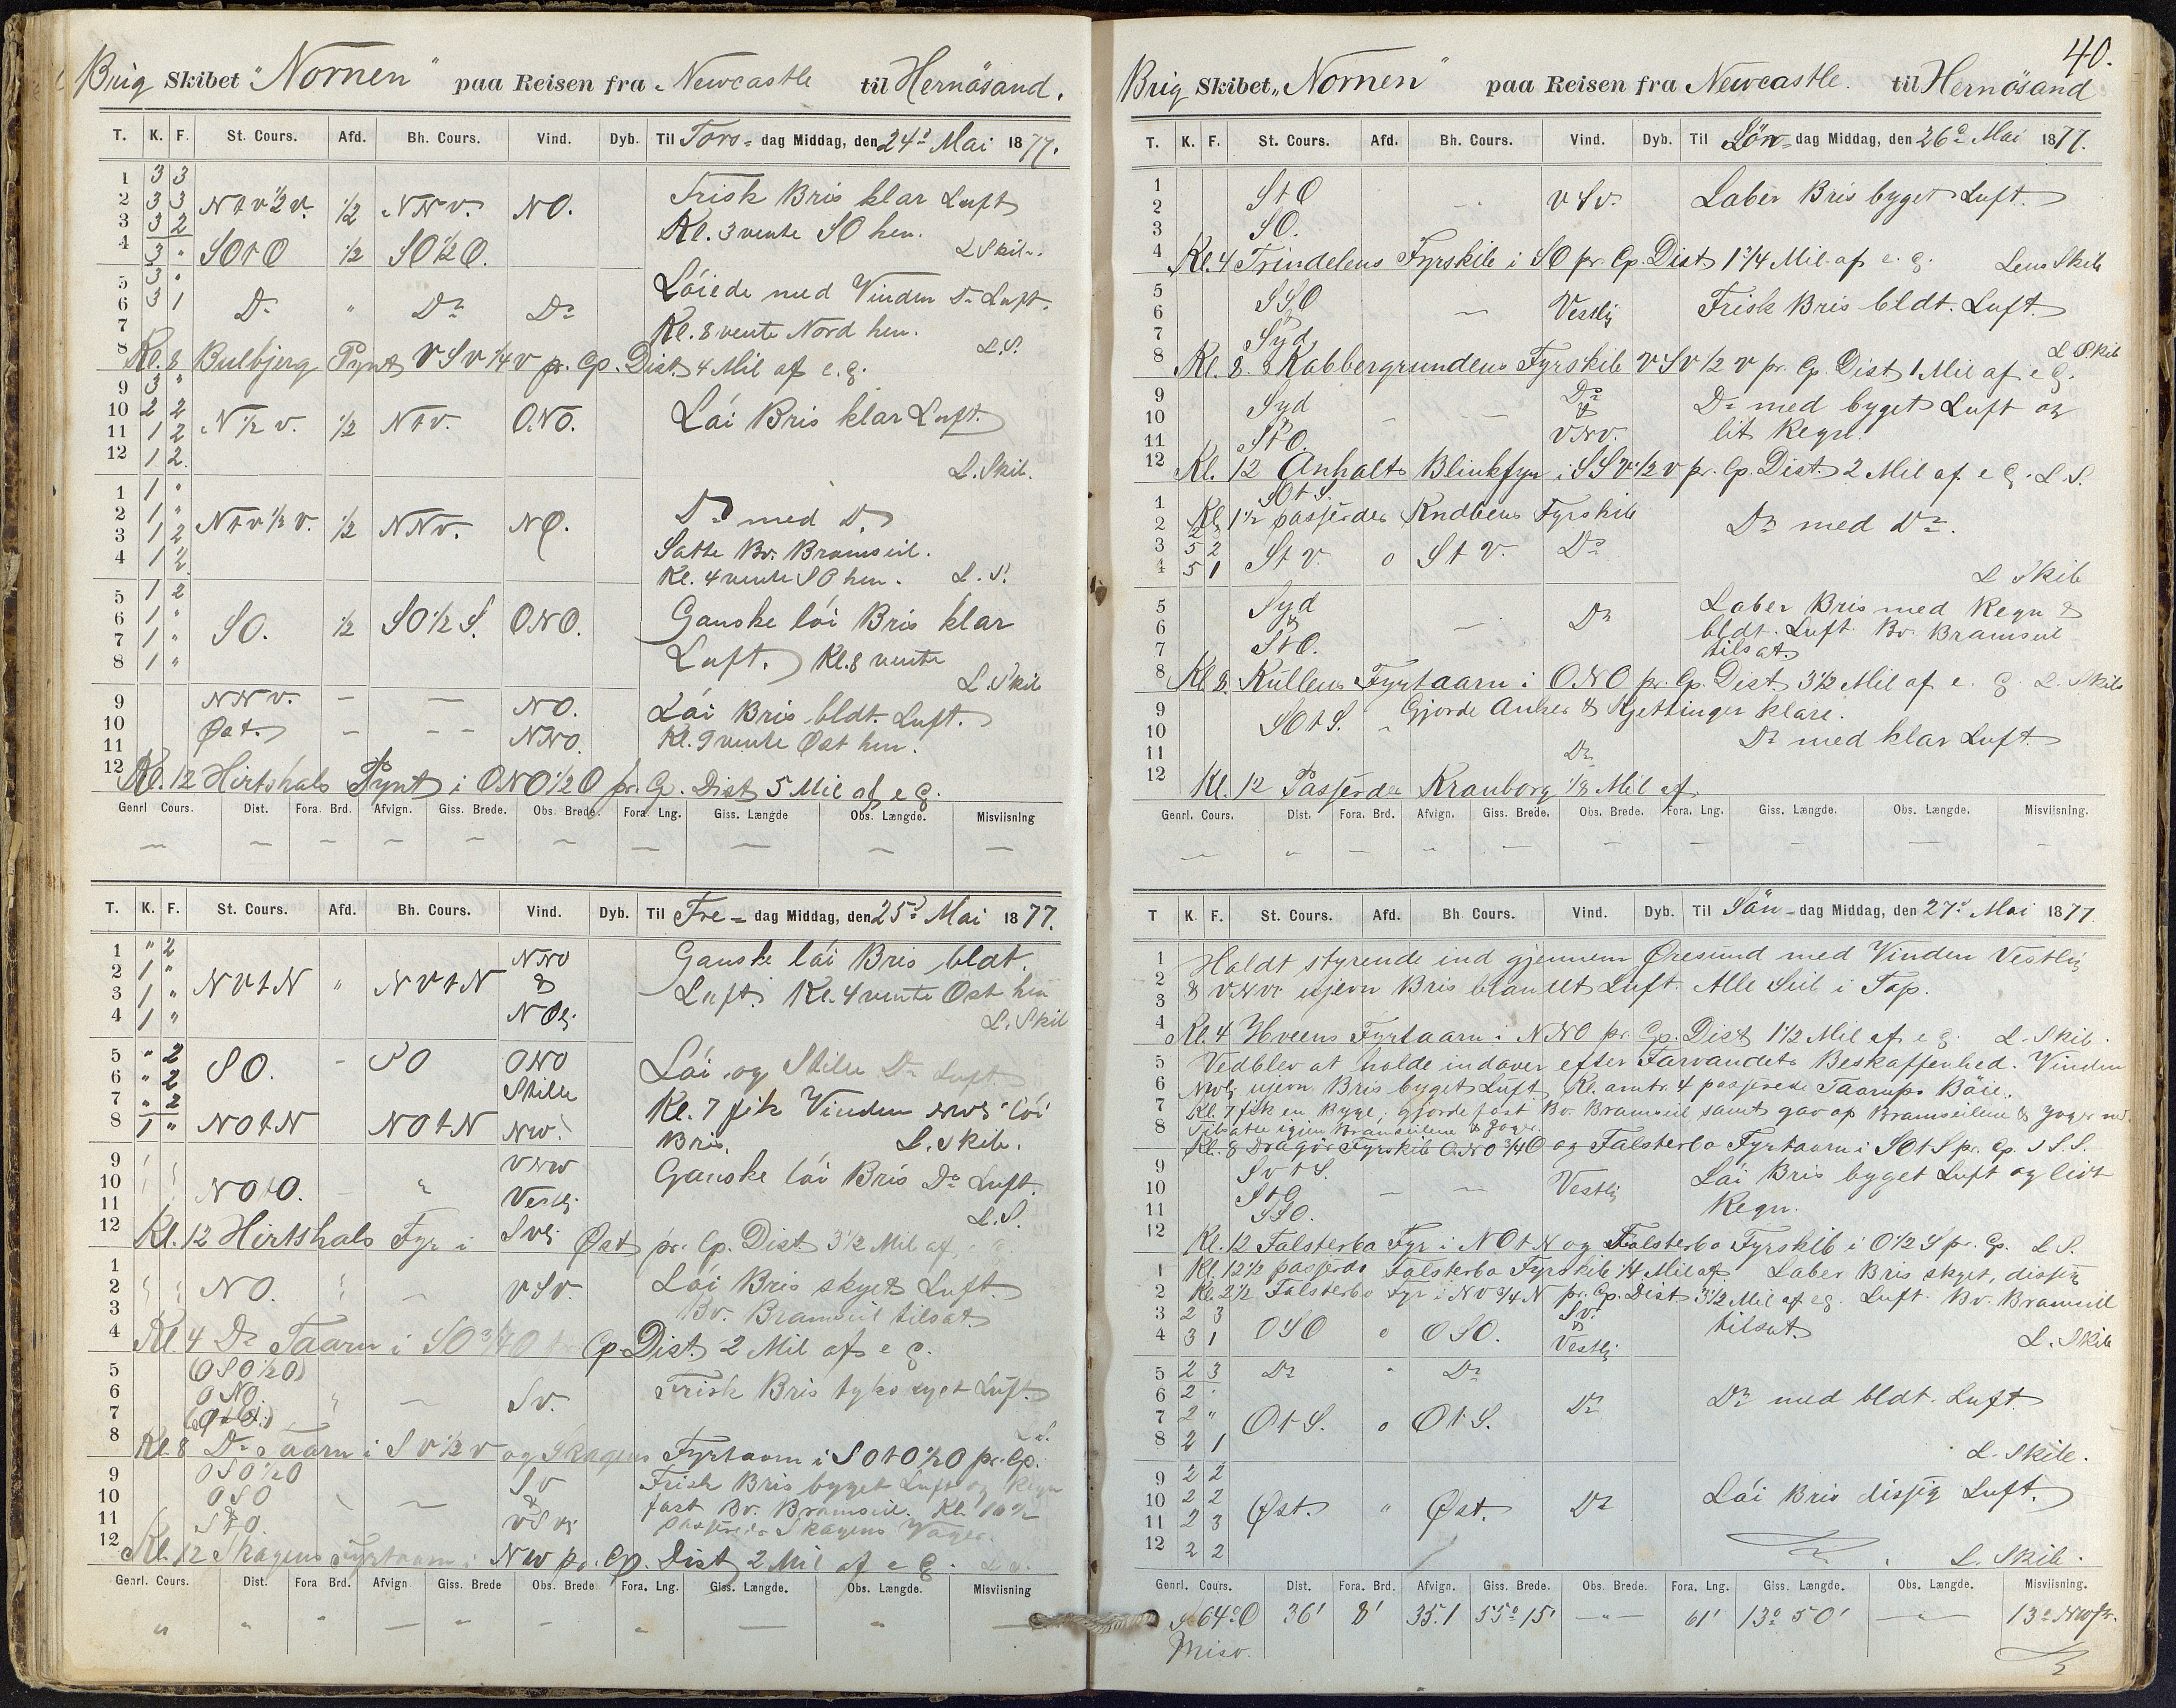 Brig Skibet "Nornen" paa Reisen fra Newcastle til Hernösand.
T. K. F. St. Cours. Afd. Bh. Cours. Vind. Dyb. Til Tors- dag Middag, den 24d Mai 1877.
1 3 3 Frisk Bris klar Luft
2 3 3 NtV½V. ½ NNV. NO.
3 3 2 Kl. 3 vente SO hen.
4 3 " SOtO ½ SO½O. L Skib.
5 3 " Löiede med Vinden Do Luft.
6 3 1 Do " Do Do
7 Kl. 8 vente Nord hen.
8 L.S.
Kl. 8 Bulbjerg Pynt VSV¼V pr. Cp. Dist 4 Mil af e.g.
9 3 "
10 2 2 N½V. ½ NtV. ONO. Löi Bris klar Luft.
11 1 2
12 1 2. L. Skib.
1 1 "
2 1 " NtV½V. ½ NNV. NO. Do med Do
3 1 2 Satte Bv. Bramseil.
4 1 2 Kl. 4 vente SO hen. L. S.
5 1 2
6 1 " SO. ½ SO½S. ONO. Ganske löi Bris klar
7 1 "
8 1 " Luft. Kl. 8 vente
L. Skib
9 NNV. — — NO. Löi Bris bldt. Luft.
10 Øst. — — NNO. Kl. 9 vente Øst hen.
11
12 Kl. 12 Hirtshals Pynt i ONO½O pr. Cp. Dist 5 Mil af e g.
Genrl Cours. Dist. Fora. Brd. Afvign. Giss. Brede. Obs. Brede. Fora. Lng. Giss. Længde Obs. Længde. Misviisning
— — — — — — — — — —
T. K. F. St. Cours. Afd. Bh. Cours. Vind. Dyb. Til Fre- dag Middag, den 25d Mai 1877.
1 " 2 NNO Ganske löi Bris bldt.
2 1 " NVtN " NVtN &
3 1 " Luft. Kl. 4 vente Ost hen
4 1 " NOlj L. Skib
5 " 2 SO. - SO ONO Löi og Stille Do Luft.
6 " 2 Stille
7 " 2 Kl. 7 fik Vinden NWlj löi
8 1 " NOtN NOtN NW. Bris. L. Skib.
9 VNW Ganske löi Bris Do Luft.
10 NOtO. " Vestlj
11 L.S.
12 Kl. 12 Hirtshals Fyr i Øst pr. Cp. Dist 3½ Mil af
SVlj
1
2 NO. — VSV. Löi Bris skyet Luft.
3 Bv. Bramseil tilsat.
4 Kl. 4 Do Taarn i SO¾O Cp Dist. 2 Mil af e g.
5 OSO½O
6 ONO " — SV. Frisk Bris tyk Luft.
7
8 Kl. 8 Do Taarn i SV½V og Skagens Fyrtaarn i SOtO½O pr. Cp.
9 OSO½O SV Frisk Bris byget Luft og Regn
10 OSO & fast Bv. Bramseil. Kl. 10½
11 StO. — VSVlj passerede Skagens Vager.
12 Kl. 12 Skagens Fyrtaarn i NW pr. Cp. Dist 2 Mil af e g.
Genrl. Cours. Dist. Fora Brd. Afvign Giss. Brede Obs. Brede Fora. Lng. Giss. Længde. Obs. Længde. Misviisning
" " " — " — " — " —
40.
Brig Skibet "Nornen" paa Reisen fra Newcastle. til Hernösand
T. K. F. St. Cours. Afd. Bh. Cours. Vind. Dyb. Til Lör- dag Middag, den 26d Mai 1877.
1 StO VSV. Laber Bris byget Luft.
2
3 SO.
4 Kl. 4 Trindelens Fyrskib i SO pr. Cp. Dist 1¾ Mil af e. g. Lens Skib
5 SSO — Vestlj Frisk Bris bldt. Luft.
6 &
7 Syd
8 Kl. 8. Kobbergrundens Fyrskib VSV½V pr. Cp. Dist 1 Mil af e g. L Skib
9 Syd Do Do med byget Luft og
10 & — — &
11 StO. VNV. lit Regn.
12 Kl. 12 Anholts Blinkfyr i SSV½V pr. Cp. Dist. 2 Mil af e g. L. S.
1 SOtS
2 Kl. 1½ passerdes Kndbens Fyrskib Do med Do.
3 5 2 StV. o StV. Do
4 5 1 L Skib
5 Syd Do Laber Bris med Regn &
6 & — bldt. Luft Bv. Bramseil
7 StO. tilsat.
8 Kl. 8. Kullens Fyrtaarn i ONO pr. Cp. Dist. 3½ Mil af e. g. L. Skib
9 Gjorde Anker & Kjettinger klare.
10 SOtS. " Do med klar Luft.
11 Do
12 Kl. 12 Passerdes Kronborg ⅛ Mil af.
Genrl. Cours. Dist. Fora. Brd. Afvign. Giss. Brede. Obs. Brede. Fora. Lng. Giss. Længde. Obs. Længde. Misviisning.
— " — " — — — — — -
T K. F. St. Cours. Afd. Bh Cours. Vind. Dyb. Til Sön- dag Middag, den 27d Mai 1877
1 Holdt styrende ind gjennem Øresund med Vinden Vestlig
2 & VNV ujevn Bris blandet Luft. Alle Seil i Top.
3
4 Kl. 4 Hveens Fyrtaarn i NNO pr. Cp. Dist 1½ Mil af e g. L. Skib.
5 Vedblev at holde indover efter Farvandets Beskaffenhed. Vinden
6 NWlj ujevn Bris byget Luft Kl. omtr. 4 passerede Taarups Böie.
7 Kl. 7 fik en Byge, gjorde fast Bv. Bramseil samt gav op Bramseilene & Jager ned.
8 Tilsatte igjen Bramseilene & Jager.
Kl. 8 Dragör Fyrskib ONO¾O og Falsterbo Fyrtaarn i SOtS pr. Cp.
9 SVtS. Löi Bris byget Luft og lidt
10 StO — — Vestlig
11 SSO. Regn.
12 Kl. 12 Falsterbo Fyr i NOtN og Falsterbo Fyrskib i O½S pr. Cp. L S.
1 Kl. 12½ passerde Falsterbo Fyrskib ¼ Mil af Laber Bris skyet, dissig
2 Kl. 2½ Falsterbo Fyr i NV¾N pr. Cp. Dist. 3½ Mil af eg. Luft. Bv. Bramseil
3 2 3 SV. tilsat.
4 3 1 OSO o OSO. & Vestlj L. Skib
5 2 3 Do " Do
6 2 " Do med bldt. Luft
7 2 " OtS. o OtS. Do
8 2 1 L. Skib.
9 2 2
10 2 2 Øst. " Øst. Do Löi Bris dissig Luft.
11 2 3
12 2 2 L. Skib.
Genrl. Cours. Dist. Fora. Brd. Afvign. Giss. Brede. Obs. Brede. Fora. Lng. Giss. Længde. Obs. Længde. Misviisning.
S 64° O 36' 8' 35.1 55° 15' — " — 61' 13° 50' — " — 13° NWpr.
Misv.